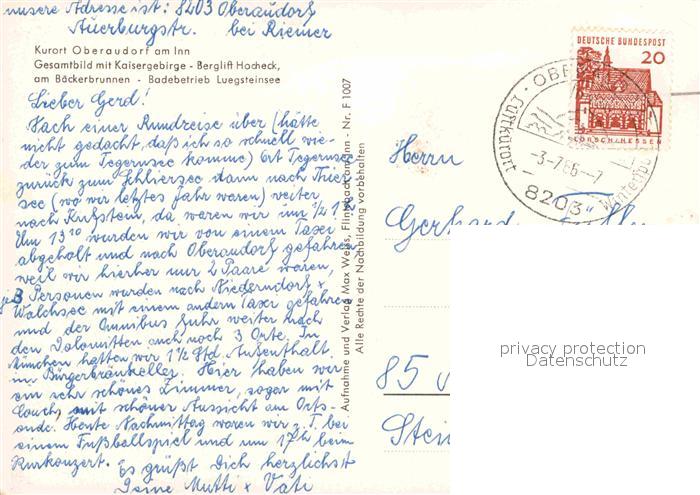 unsere Adresse ist: 8203 Oberaudorf
Auerburgstr. bei Riemer
Kurort Oberaudorf am Inn
Gesamtbild mit Kaisergebirge - Berglift Hocheck,
am Bäckerbrunnen - Badebetrieb Luegsteinsee
Lieber Gerd!
Nach einer Rundreise über (hätte
nicht gedacht, daß ich so schnell wie-
der zum Tegernsee komme) Ort Tegernsee
zurück zum Schliersee dann nach Thier-
see (wo wir letztes Jahr waren) weiter
nach Kufstein, da waren wir um 1/2 1.
Um 13 10 wurden wir von einem Taxi
abgeholt und nach Oberaudorf gefahren
weil wir hierher nur 2 Paare waren,
je 3 Personen wurden nach Niederndorf +
Walchsee mit einem andern Taxi gefahren
und der Omnibus fuhr weiter nach
den Dolomitten auch noch 3 Orte. In
München hatten wir 1 1/2 Std. Aufenthalt
im Bürgerbräukeller. Hier haben wir
ein sehr schönes Zimmer, sogar mit
Couch, mit schöner Aussicht am Orts-
ende. Heute Nachmittag waren wir z. T. bei
einem Fußballspiel und um 17h beim
Kurkonzert. Es grüßt Dich herzlichst
Deine Mutti + Vati
Aufnahme und Verlag Max Weiss, Flintsbach am Inn - Nr. F 1007
Alle Rechte der Nachbildung vorbehalten
DEUTSCHE BUNDESPOST
20
LORSCH/HESSEN
Luftkurort
-3-7.66-7
8203
Herrn
Gerhard
85
Stein
privacy protection
Datenschutz